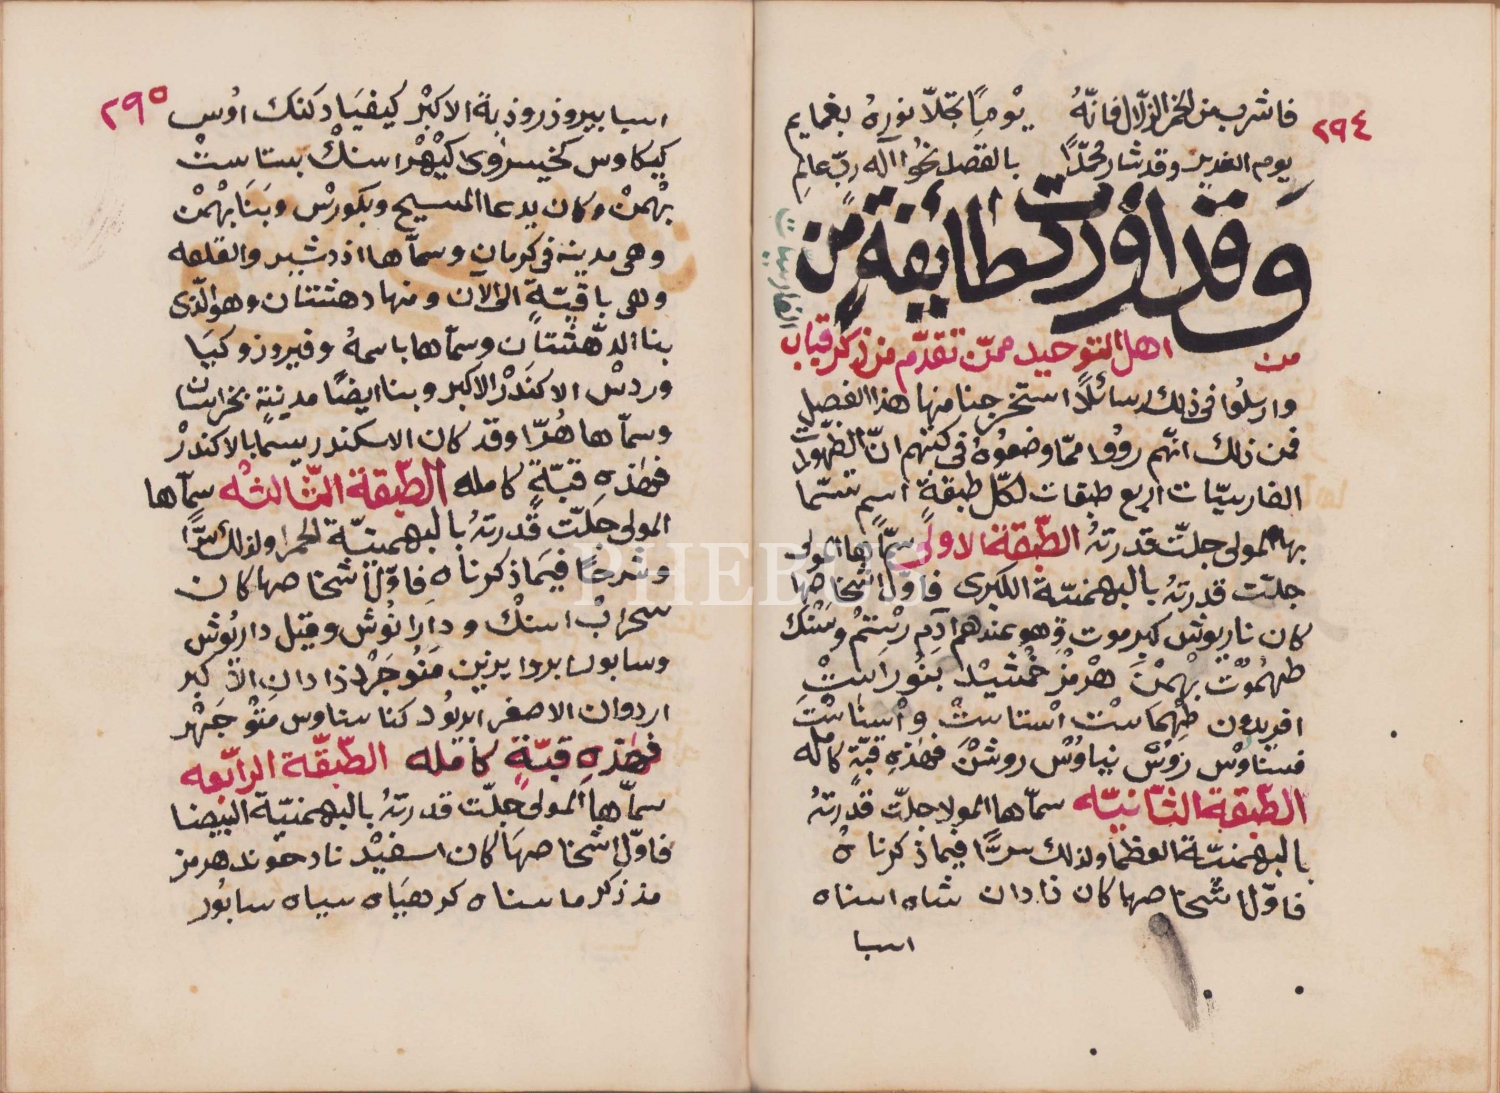 ٢٩٤
فاشرب من الخمر الزلال فانّهُ يوماً تجلّا نورهُ بغمايم
يوم الغدير وقد شار محمّداً بالقصد نحوا آله ربّ عالمِ
وقد اوردت طائفةٍ من
الفارسيات
من اهل التوحيد ممّن تقدّم من ذكر قباب
وارسلُوا في ذلك رسائلاً استخرجنا منها هذا الفصل
فمن ذلك انّهم روُوا ممّا وضعوُهُ في كتبهم انّ الظهورات
الفارسيّات اربع طبقات لكلّ طبقةٍ اسم تتسمّا
بها المولى جلّت قدرتهُ الطّبقة الاولى سمّاها المولى
جلّت قدرتهُ بالبهمنيّة الكبرى فاوّل اشخاصها
كان ناريوش كيرموت وهو عندهم آدم رستمُ وسَنْك
طهُموُت بهْمنَ هرْمزُ جمْشيْد بنوُراستْ
افريدون طهماستْ استاستْ واستاستْ
فسناوُسْ زوُسْ نياوُسْ روشنْ فهٰذهِ قبّةٍ كاملة
الطّبقة الثّانيّه سمّاها المولا جلّت قدرتهُ
بالبهمنيّة العظما ولذلك سرّاً فيما ذكرناهُ
فاوّل اشخاصها كان ذادان شاه اسناه
اسبا
٢٩٥
اسبا بيروز روذبة الاكبرْ كيفيَاد كنك اوُس
كيكاوس كخيسروى كيْهْراسنكْ بستاستْ
بهْمنْ وكان يدعا المسيح وبكورسْ وبَنَا بهْمنْ
وهي مدينه في كرمان وسمّاها اذدشير والقلعه
وهي باقيّةٍ الى الآن ومنها دهشتان وهو الّذي
بنا الدّهشتان وسمّاها باسمهُ وفيروز وكيَا
وردسْ الاكندْر الاكبر وبنا ايضًا مدينةٍ بخراسان
وسمّاها هُرّا وقد كان الاسكندر يسما بالاكندرْ
فهٰذهِ قبّةٍ كامله الطّبقة الثّالثهُ سمّاها
المولى جلّت قُدرتهُ بالبهمنيّة الحمرا ولذلك سرًّا
وشرحًا فيمَا ذكرناه فاوّل اشخاصها كان
سحرابْ اسنكْ ودارانُوش وقيل داريُوش
وسابور ابروا يزنين مَنوُجَرْد ذادان الاكبر
اردوان الاصغر ابربُود كنا سناوس منوْجَهْر
فهٰذهِ قبّةٍ كامله الطّبقّة الرابّعه
سمّاها المولى جلّت قدرتهُ بالبهمنيّة البيضا
فاوّل اشخاصهَا كان اسفيْد نادحوند هرمز
مذذكر ماسناه كرهيَاه سياه سابُور